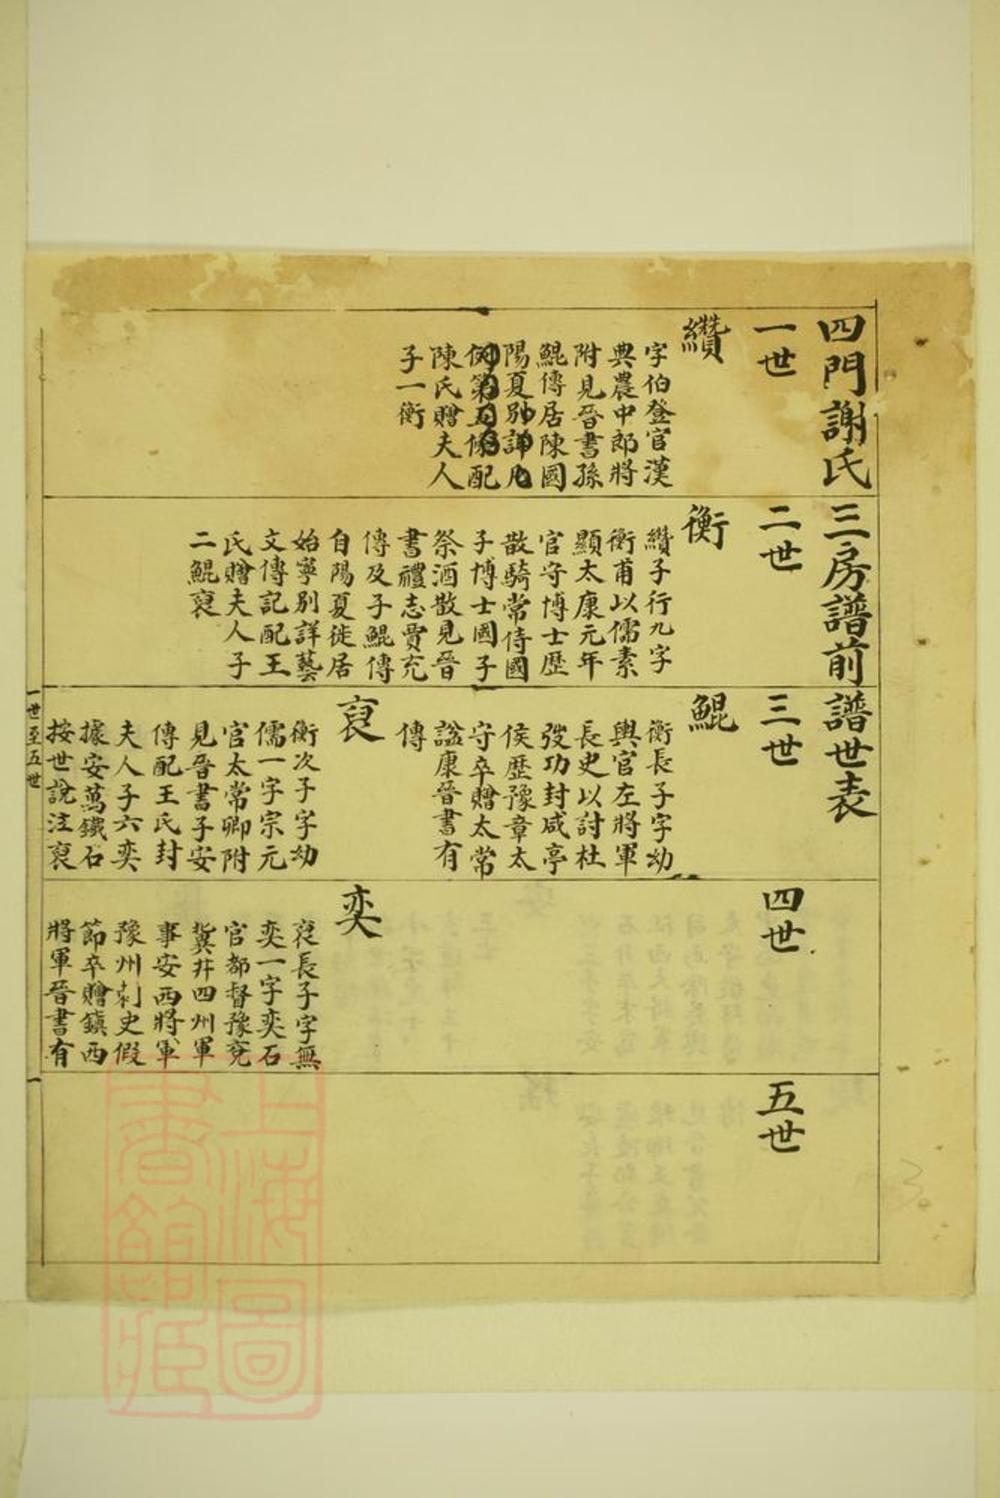 四門謝氏三房譜前譜世表
一世
纘
字伯登官漢
典農中郎將
附見晉書孫
鯤傳居陳國
陽夏別詳凡
例第五條配
陳氏贈夫人
子一衡
二世
衡
纘子行九字
衡甫以儒素
顯太康元年
官守博士歷
散騎常侍國
子博士國子
祭酒散見晉
書禮志賈充
傳及子鯤傳
自陽夏徙居
始寧別詳藝
文傳記配王
氏贈夫人子
二鯤裒
三世
鯤
衡長子字幼
輿官左將軍
長史以討杜
弢功封咸亭
侯歷豫章太
守卒贈太常
諡康晉書有
傳
裒
衡次子字幼
儒一字宗元
官太常卿附
見晉書子安
傳配王氏封
夫人子六奕
據安萬鐵石
按世說注裒
四世
奕
裒長子字無
奕一字奕石
官都督豫兗
冀并四州軍
事安西將軍
豫州刺史假
節卒贈鎮西
將軍晉書有
五世
一世至五世
一
上海圖
書館藏